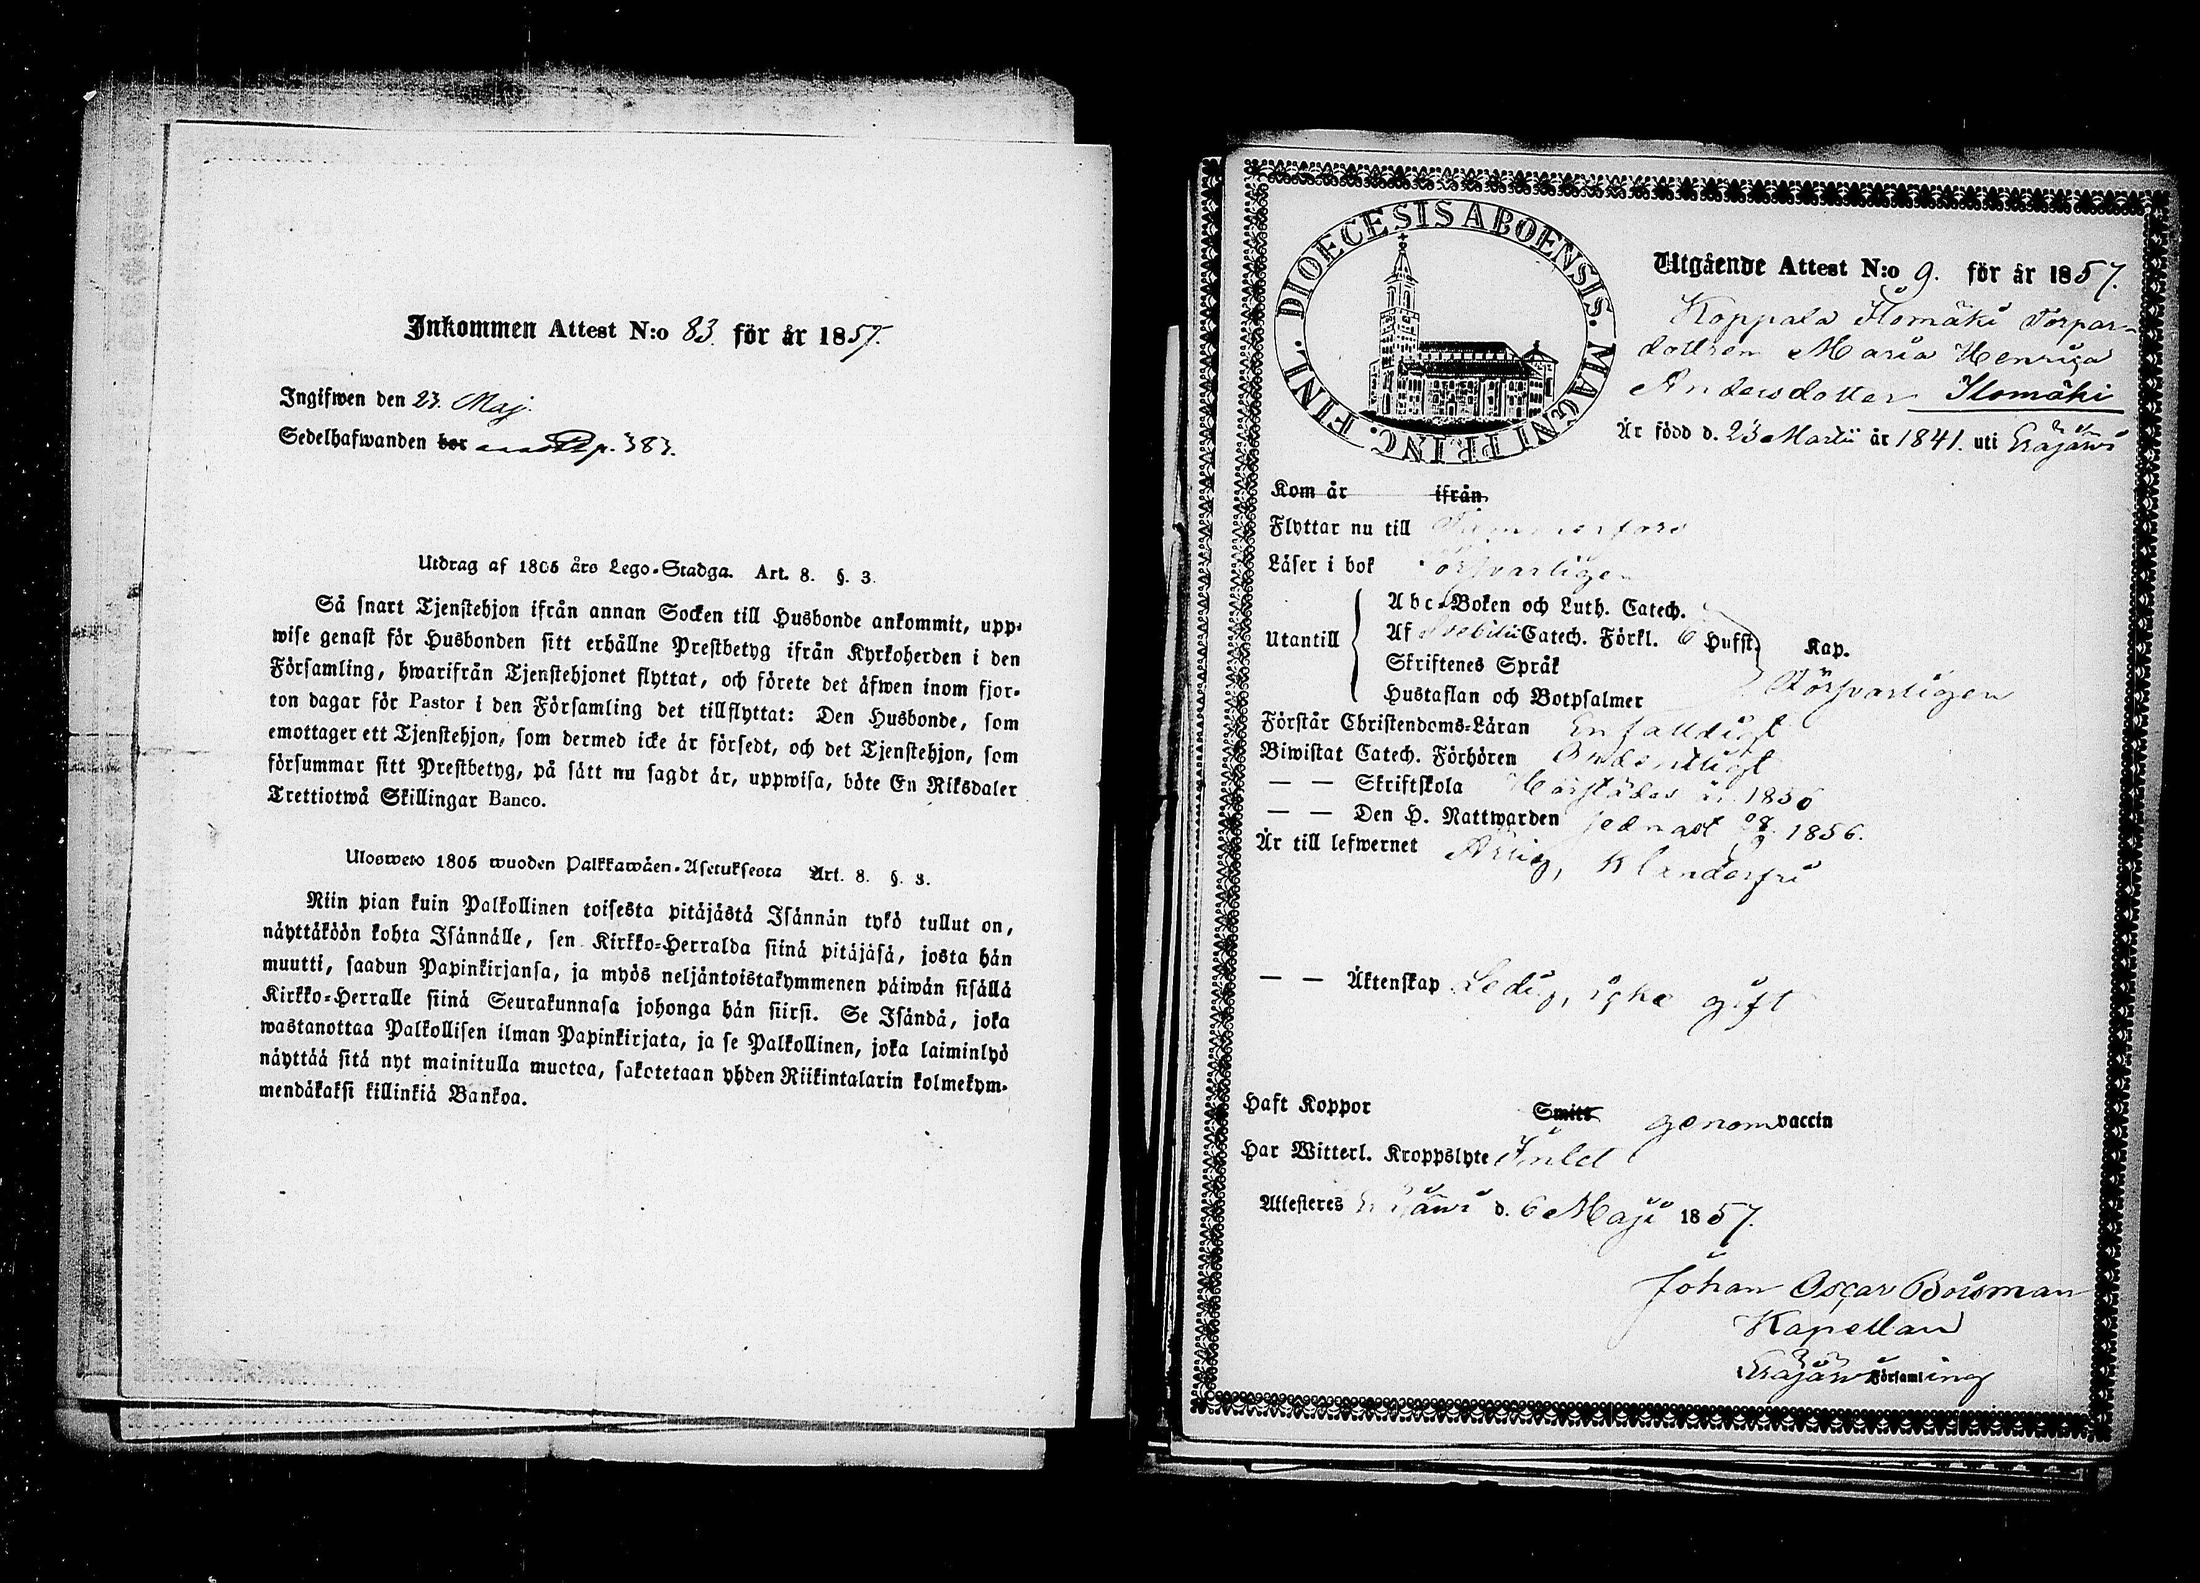 Inkommen Attest N:o 83 för år 1857.
Ingifwen den 23. Maj.
Sedelhafwanden bor p. 383.
Utdrag af 1805 års Lego-Stadga. Art. 8. §. 3.
Så snart Tjenstehjon ifrån annan Socken till Husbonde ankommit, upp-
wise genast för Husbonden sitt erhållne Prestbetyg ifrån Kyrkoherden i den
Församling, hwarifrån Tjenstehjonet flyttat, och förete det äfwen inom fjor-
ton dagar för Pastor i den Församling det tillflyttat: Den Husbonde, som
emottager ett Tjenstehjon, som dermed icke är försedt, och det Tjenstehjon, som
försummar sitt Prestbetyg, på sätt nu sagdt är, uppwisa, böte En Riksdaler
Trettiotwå Skillingar Banco.
Ulosweto 1805 wuoden Palkkawäen-Asetuksesta Art. 8. §. 3.
Niin pian kuin Palkollinen toisesta pitäjästä Isännän tykö tullut on,
näyttäköön kohta Isännälle, sen Kirkko-Herralda siinä pitäjäsä, josta hän
muutti, saadun Papinkirjansa, ja myös neljäntoistakymmenen päiwän sisällä
Kirkko-Herralle siinä Seurakunnasa johonga hän siirsi. Se Isändä, joka
wastanottaa Palkollisen ilman Papinkirjata, ja se Palkollinen, joka laiminlyö
näyttää sitä nyt mainitulla muotoa, sakotetaan yhden Riikintalarin kolmekym-
mendäkaksi killinkiä Bankoa.
DIOECESIS ABOENSIS. MAGNI PRINC. FINL.
Utgående Attest N:o 9. för år 1857.
Koppala Ilomäki Torpar-
dottren Maria Henrica
Andersdotter Ilomäki
Är född d. 23 Martii år 1841. uti Eräjärwi
Kom år ifrån
Flyttar nu till Tammerfors
Läser i bok Försvarligen
Utantill
Abc-Boken och Luth. Catech.
Af Svebilii Catech. Förkl. 6 Hufst. Kap.
Skriftenes Språk
Hustaflan och Botpsalmer Försvarligen
Förstår Christendoms-Läran Enfaldigt
Biwistat Catech. Förhören Ordentligt
— — Skriftskola Härstädes år 1856
— — Den H. Nattwarden sednast 1856.
Är till lefwernet Ärlig, Klanderfri
— — Äktenskap Ledig, icke gift
Haft Koppor Smitt genom vaccin
Har Witterl. Kroppslyte Intet
Attesteres Eräjärwi d. 6 Maji 1857.
Johan Oscar Boisman
Kapellan
Eräjärwi Församling